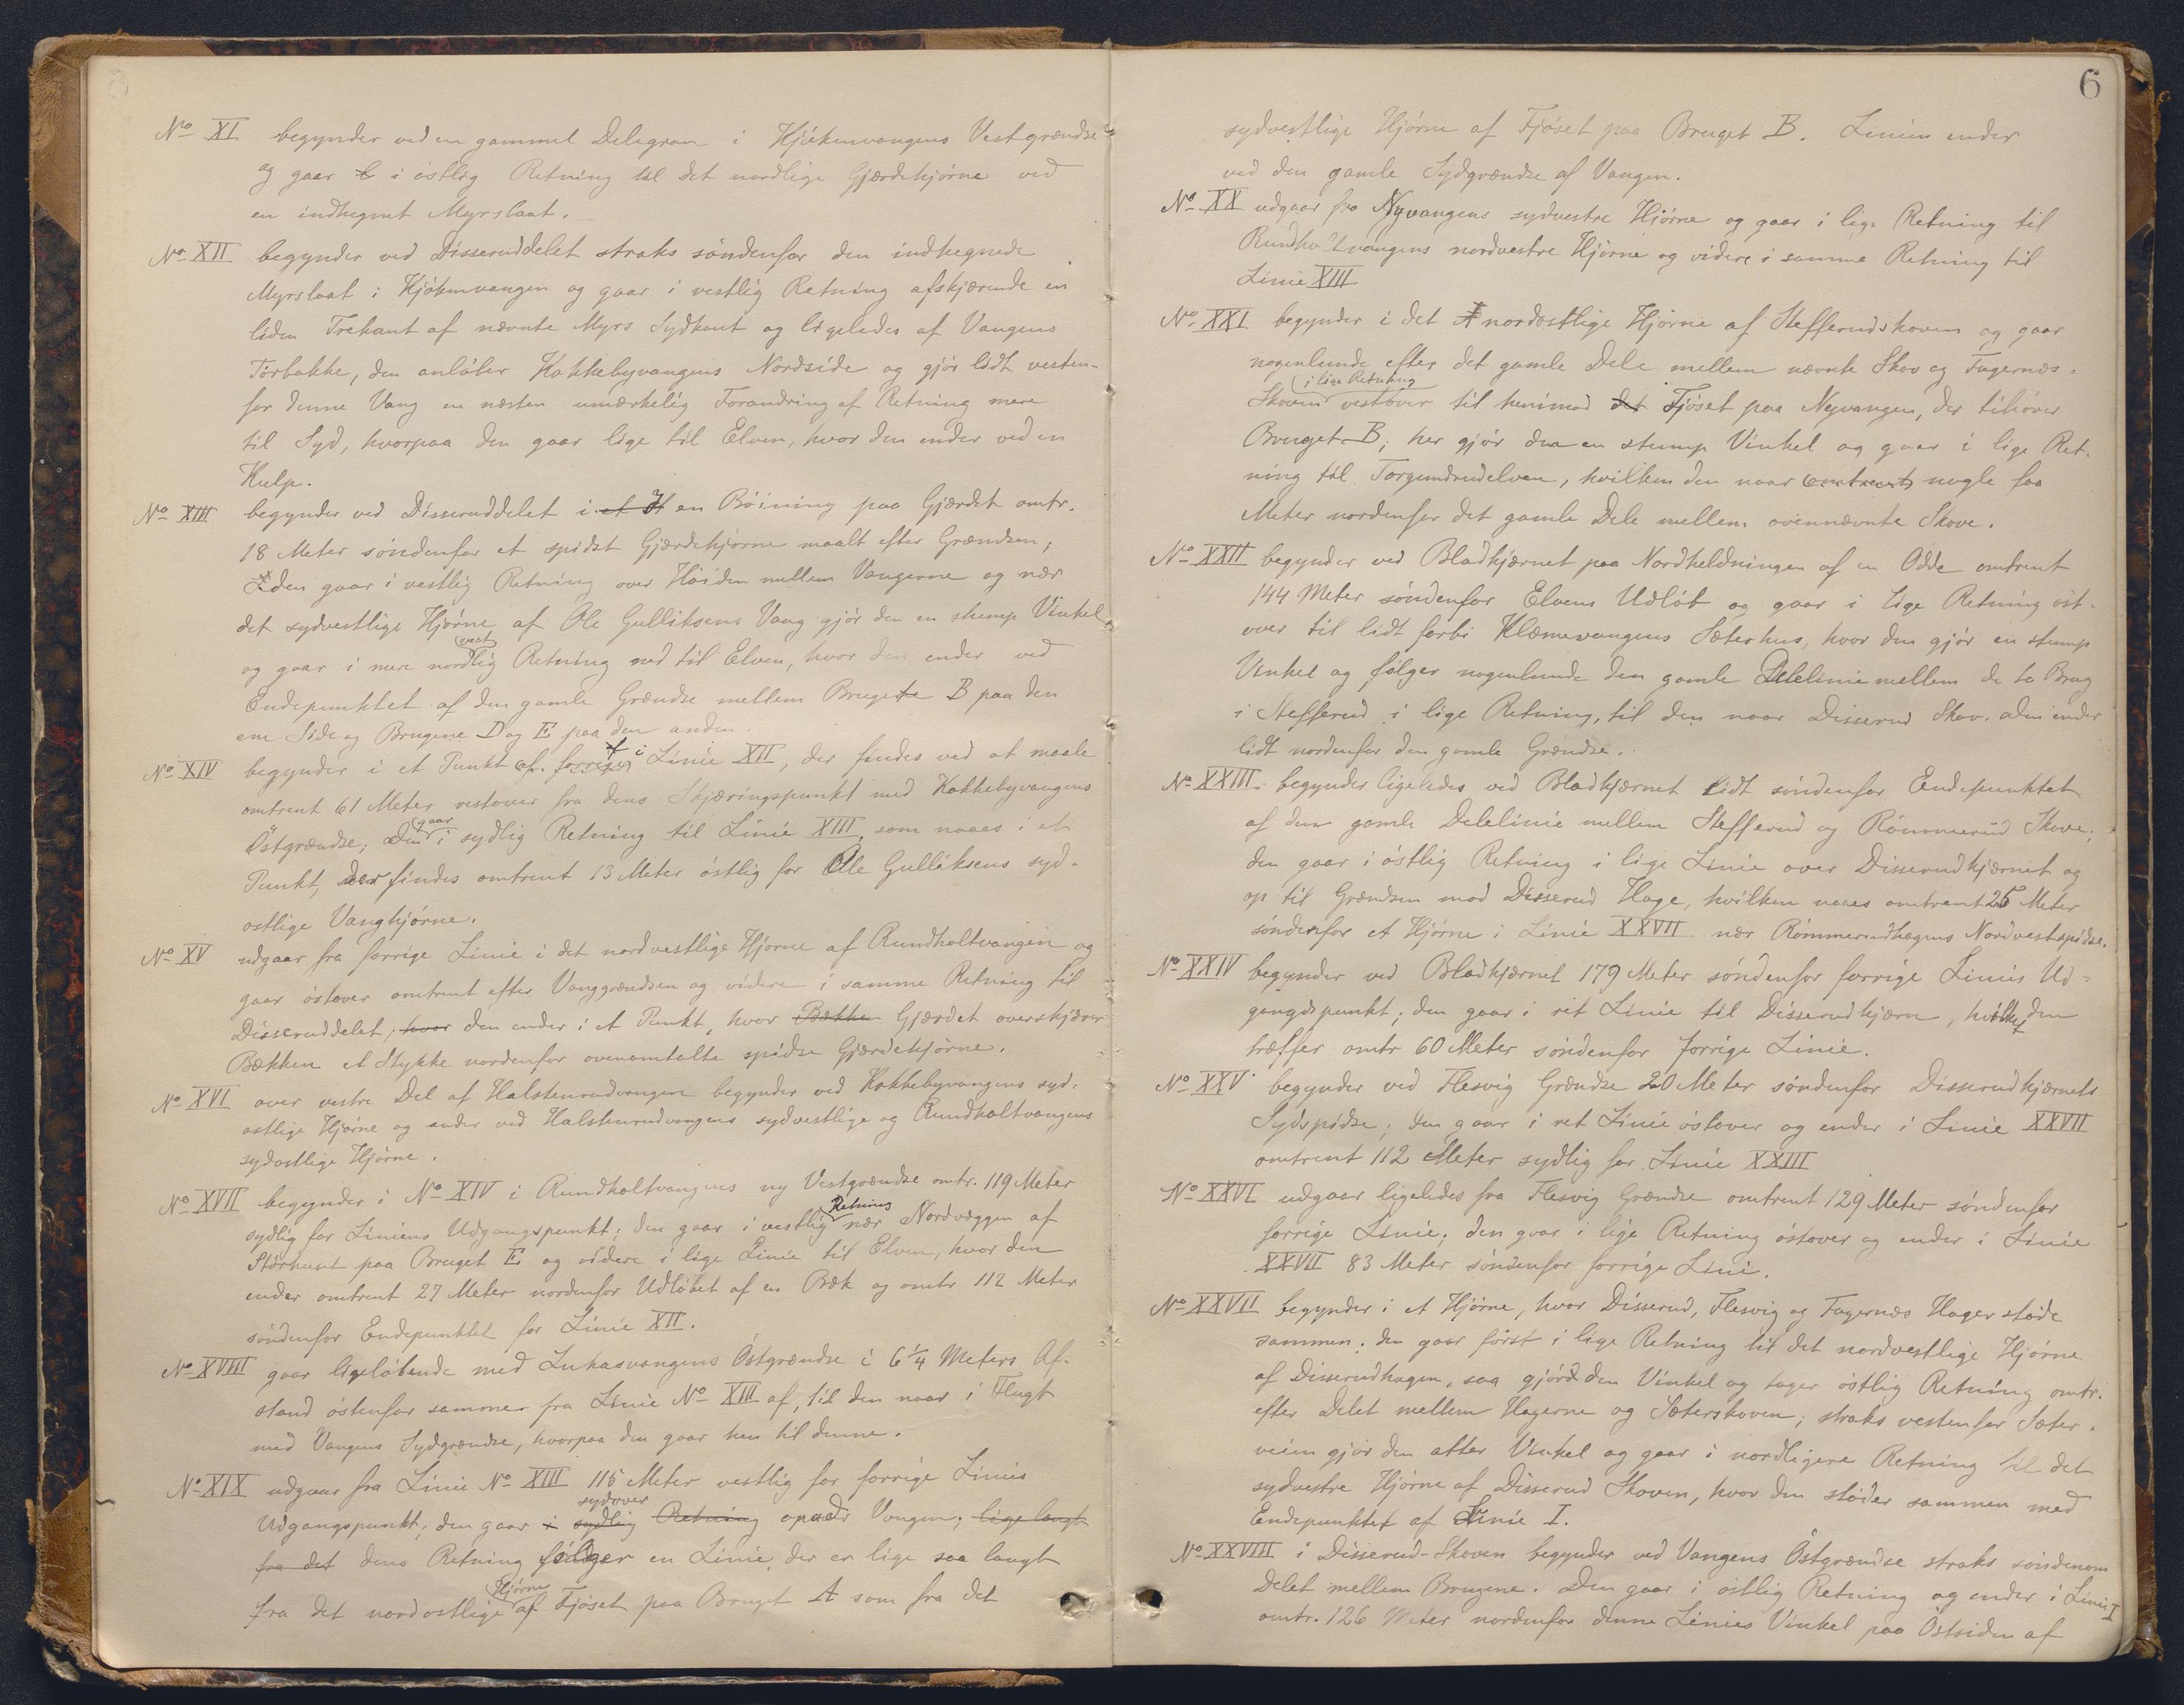 No XI begynder ved en gammel Delegran i Kjøkenvangens Vestgrændse
og gaar i østlig Retning til det nordlige Gjærdehjørne ved
en indhegnet Myrslaat.
No XII begynder ved Disseruddelet straks søndenfor den indhegnede
Myrslaat i Kjøkenvangen og gaar i vestlig Retning afskjærende en
liden Trekant af nævnte Myrs Sydkant og ligeledes af Vangens
Tørbakke, den anløber Kakkebyvangens Nordside og gjør lidt vesten-
for denne Vang en næsten umærkelig Forandring af Retning mere
til Syd, hvorpaa den gaar lige til Elven, hvor den ender ved en
Kulp.
No XIII begynder ved Disseruddelet i et H en Bøining paa Gjærdet omtr.
18 Meter søndenfor et spidst Gjærdehjørne maalt efter Grændsen;
den gaar i vestlig Retning over Høiden mellem Vangerne og nær
det sydvestlige Hjørne af Ole Gulliksens Vang gjør den en stump Vinkel
og gaar i mere nordvestlig Retning ned til Elven, hvor den ender ved
Endepunktet af den gamle Grændse mellem Brugete B paa den
ene Side og Brugene D og E paa den anden.
No XIV begynder i et Punkt af forrige i Linie XII, der findes ved at maale
omtrent 61 Meter vestover fra dens Skjæringspunkt med Kakkebyvangens
Østgrændse; den gaar i sydlig Retning til Linie XIII, som naaes i et
Punkt, der findes omtrent 13 Meter østlig for Ole Gulliksens syd-
ostlige Vanghjørne.
No XV udgaar fra forrige Linie i det nordvestlige Hjørne af Rundholtvangen og
gaar østover omtrent efter Vanggrændsen og videre i samme Retning til
Disseruddelet, hvor den ender i et Punkt, hvor Bækken Gjærdet overskjærer
Bækken et Stykke nordenfor ovenomtalte spidse Gjærdehjørne.
No XVI over vestre Del af Halstenrudvangen begynder ved Kakkebyvangens syd-
ostlige Hjørne og ender ved Halstenrudvangens sydvestlige og Rundholtvangens
sydostlige Hjørne.
No XVII begynder i No XIV i Rundholtvangens ny Vestgrændse omtr. 119 Meter
sydlig for Liniens Udgangspunkt; den gaar i vestlig Retning nær Nordvæggen af
Størhuset paa Bruget E og videre i lige Linie til Elven, hvor den
ender omtrent 27 Meter nordenfor Udløbet af en Bæk og omtr 112 Meter
søndenfor Endepunktet for Linie XII.
No XVIII gaar ligeløbende med Lukasvangens Østgrændse i 6 1/4 Meters Af-
stand østenfor samme fra Linie No XIII af, til den naar i Flugt
med Vangens Sydgrændse, hvorpaa den gaar hen til denne.
No XIX udgaar fra Linie No XIII 115 Meter vestlig for forrige Linies
Udgangspunkt; den gaar i sydlig sydover Retning opad Vangen; lige langt
fra det dens Retning følger en Linie, der er lige saa langt
fra det nordostlige Hjørne af Fjøset paa Bruget A som fra det
6
sydvestlige Hjørne af Fjøset paa Bruget B. Linien ender
ved den gamle Sydgrændse af Vangen.
No XX udgaar fra Nyvangens sydvestre Hjørne og gaar i lige Retning til
Rundholtvangens nordvestre Hjørne og videre i samme Retning til
Linie XIII
No XXI begynder i det nordøstlige Hjørne af Stefferudskoven og gaar
nogenlunde efter det gamle Dele mellem nævnte Skov og Fagernæs-
Skoven i lige Retning vestover til henimod det Fjøset paa Nyvangen, der tilhører
Bruget B; her gjør den en stump Vinkel og gaar i lige Ret-
ning til Torgundrudelven, hvilken den naar omtrent nogle faa
Meter nordenfor det gamle Dele mellem ovennævnte Skove.
No XXII begynder ved Bladkjærnet paa Nordheldningen af en Odde omtrent
144 Meter søndenfor Elvens Udløb og gaar i lige Retning øst-
over til lidt forbi Klæmevangens Sæterhus, hvor den gjør en stump
Vinkel og følger nogenlunde den gamle Delelinie mellem de to Brug
i Stefferud i lige Retning, til den naar Disserud Skov. den ender
lidt nordenfor den gamle Grændse.
No XXIII begynder ligeledes ved Bladkjærnet lidt søndenfor Endepunktet
af den gamle Delelinie mellem Stefferud og Rømmerud Skove;
den gaar i østlig Retning i lige Linie over Disserudkjærnet og
op til Grændsen mod Disserud Hage, hvilken naaes omtrent 25 Meter
søndenfor et Hjørne i Linie XXVII nær Rømmerudhagens Nordvestspidse.
No XXIV begynder ved Bladkjærnet 179 Meter søndenfor forrige Linies Ud-
gangspunkt; den gaar i ret Linie til Disserudkjærn, hvilket den
træffer omtr 60 Meter søndenfor forrige Linie.
No XXV begynder ved Flesvig Grændse 20 Meter søndenfor Disserudkjærnets
Sydspidse; den gaar i ret Linie østover og ender i Linie XXVII
omtrent 112 Meter sydlig for Linie XXIII
No XXVI udgaar ligeledes fra Flesvig Grændse omtrent 129 Meter søndenfor
forrige Linie; den gaar i lige Retning østover og ender i Linie
XXVII 83 Meter søndenfor forrige Linie.
No XXVII begynder i et Hjørne, hvor Disserud, Flesvig og Fagernæs Hager støde
sammen; den gaar først i lige Retning til det nordvestlige Hjørne
af Disserudhagen, saa gjør den Vinkel og tager østlig Retning omtr.
efter Delet mellem Hagerne og Sæterskoven; straks vestenfor Sæter-
veien gjør den atter Vinkel og gaar i nordligere Retning til det
sydvestre Hjørne af Disserud Skoven, hvor den støder sammen med
Endepunktet af Linie I.
No XXVIII i Disserud-Skoven begynder ved Vangens Østgrændse straks søndenom
Delet mellem Brugene. Den gaar i østlig Retning og ender i Linie I
omtr. 126 Meter nordenfor denne Linies Vinkel paa Østsiden af